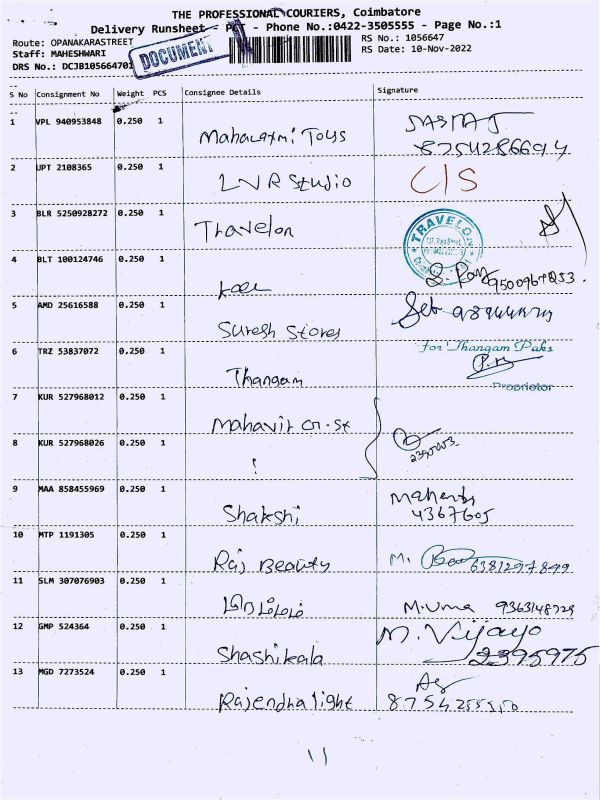 THE PROFESSIONAL COURIERS, Coimbatore
Delivery Runsheet - PCT - Phone No.:0422-3505555 - Page No.:1
Route: OPANAKARASTREET
RS No.: 1056647
Staff: MAHESHWARI
RS Date: 10-Nov-2022
DRS No.: DCJB105664701
DOCUMENT
S No Consignment No Weight PCS Consignee Details Signature
1 VPL 940953848 0.250 1 Mahalaxmi Toys
8754286694
2 UPT 2108365 0.250 1 LVR Studio C/S
3 BLR 5250928272 0.250 1 Travelon
TRAVELON
4 BLT 100124746 0.250 1
5 AMD 25616588 0.250 1 Suresh Stores
6 TRZ 53837072 0.250 1 Thangam
for Thangam Paks
Proprietor
7 KUR 527968012 0.250 1 Mahavir
8 KUR 527968026 0.250 1
9 MAA 858455969 0.250 1 Shakshi
4367605
10 MTP 1191305 0.250 1 Raj Beauty M. 6381297899
11 SLM 307076903 0.250 1 M.Uma
12 GMP 524364 0.250 1 Shashikala M. Vijaya
2395975
13 MGD 7273524 0.250 1 Rajendhalight
11